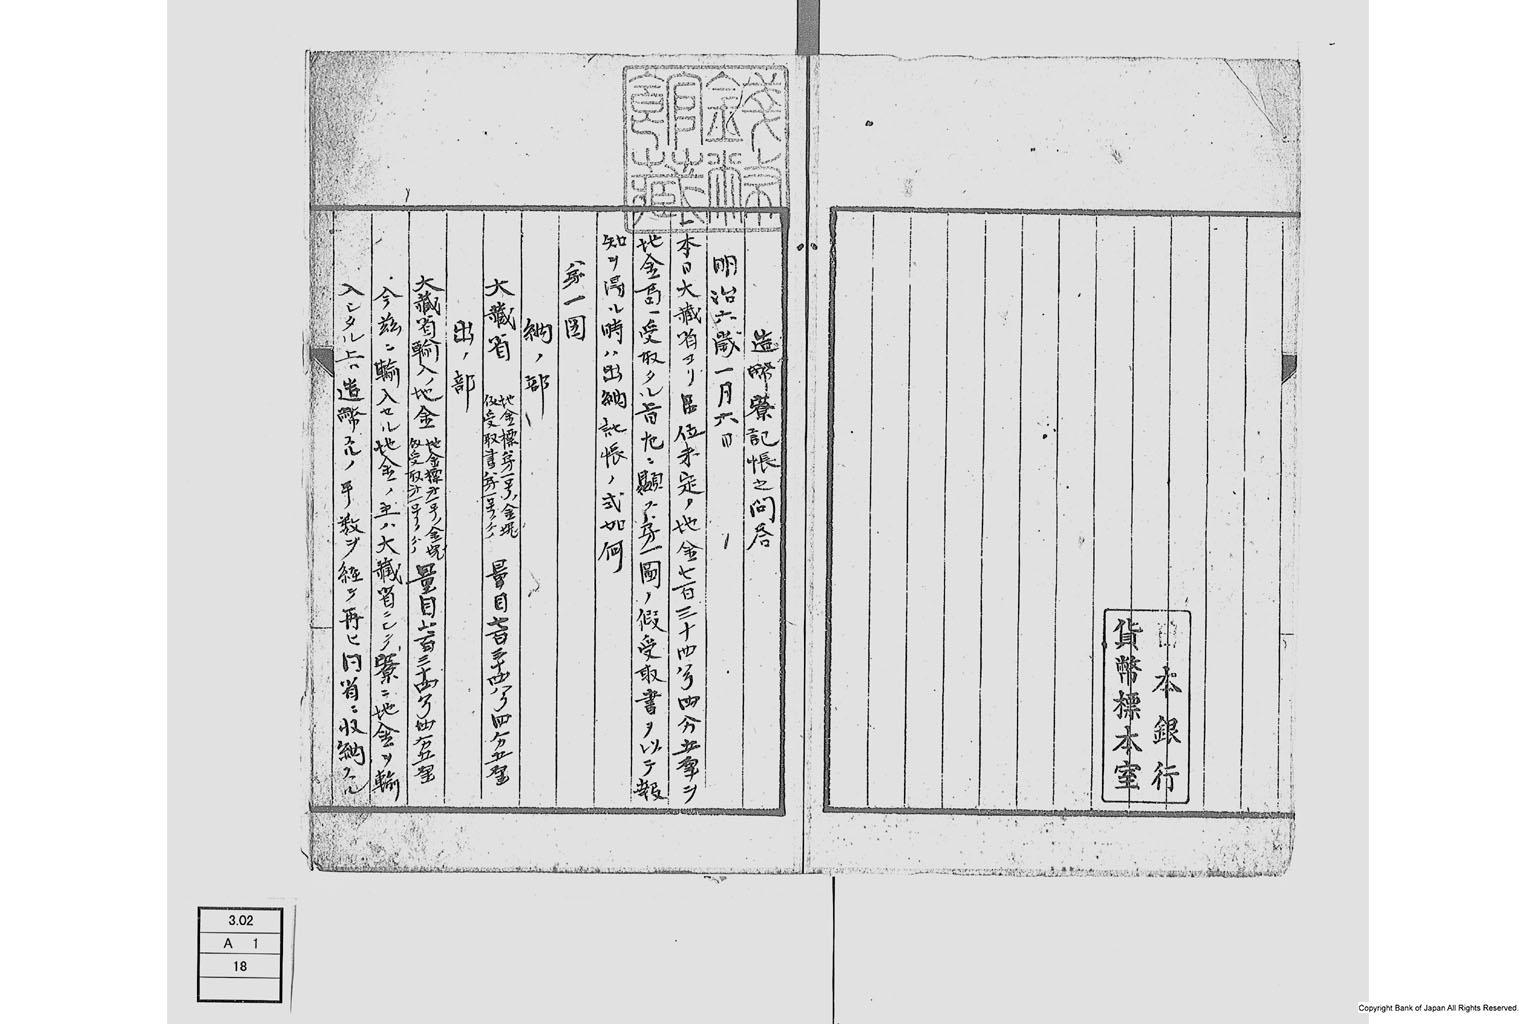 日本銀行
貨幣標本室
錢幣館藏
造幣寮記帳之問答
明治六歳一月六日
一本日大藏省ヨリ品位未定ノ地金七百三十四ヲンス四分五厘ヲ
地金局ヘ受取タル旨左ニ顯ス第一圖ノ假受取書ヲ以テ報
知ヲ得ル時ハ出納記帳ノ式如何
第一図
納ノ部
大藏省 地金標第一号ノ金塊 仮受取書第一号 量目七百三十四 四分五厘
出ノ部
大藏省輸入ノ地金 地金標第一号ノ金塊 仮受取第一号 量目七百三十四 四分五厘
今茲ニ輸入セル地金ノ主ハ大藏省ニシテ寮ニ地金ヲ輸
入シタル上ハ造幣 手数ヲ経テ再ヒ同省ニ収納スル
3.02
A 1
18
Copyright Bank of Japan All Rights Reserved.